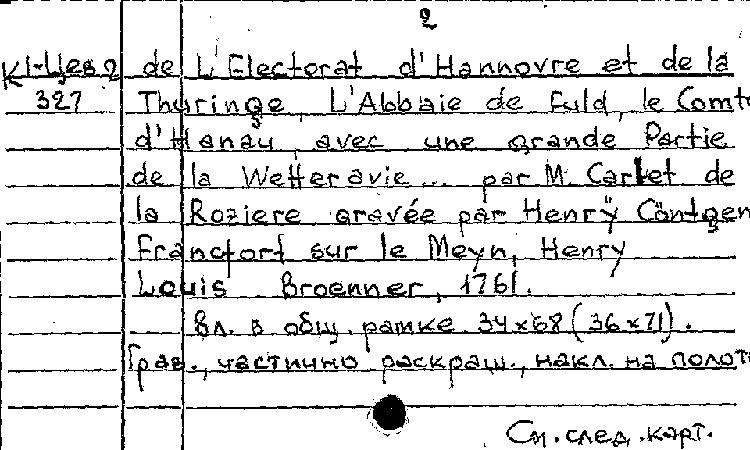 2
K1-Цев.2 de L'Electorat d'Hannovre et de la
327 Thuringe, L'Abbaie de Fuld, le Comte
d'Hanau, avec une grande Partie
de la Wetteravie... par M. Carlet de
la Roziere gravée par Henry Cöntgen
Francfort sur le Meyn, Henry
Louis Broenner, 1761.
8л. в общ. рамке 34x68 (36x71).
Грав., частично раскраш., накл. на полот
См. след. карт.